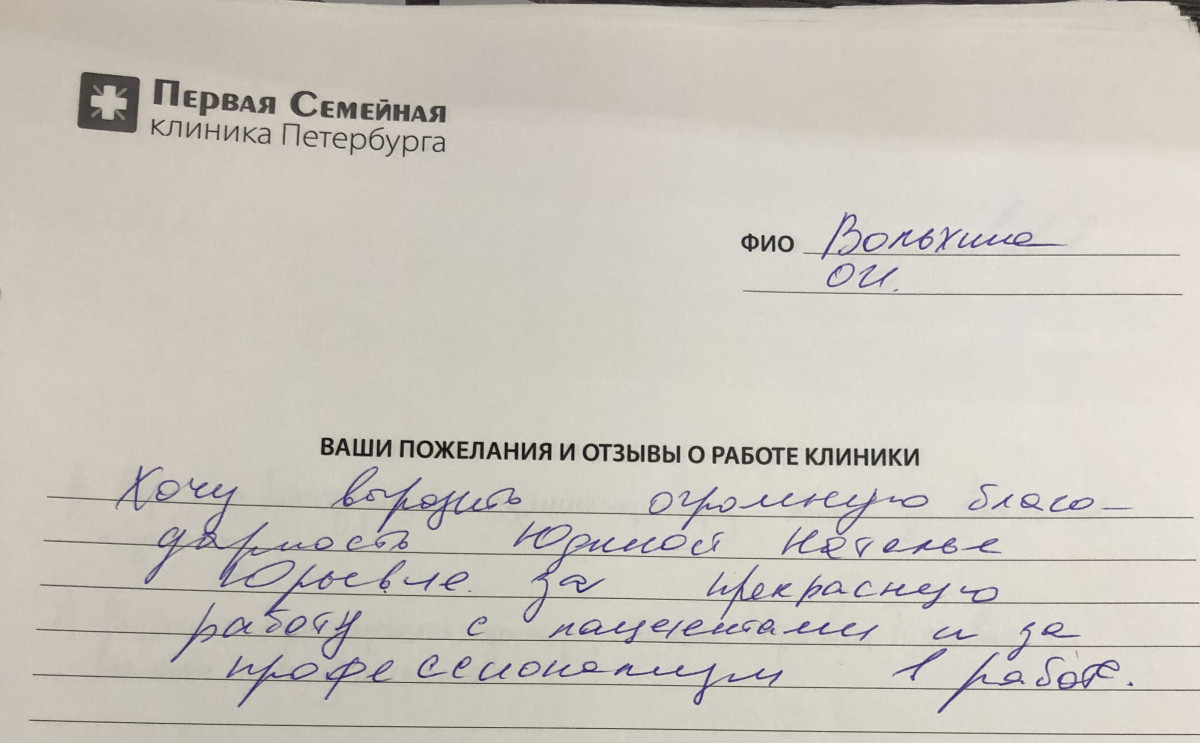 Первая Семейная
клиника Петербурга
ФИО Вольхина
О.И.
ВАШИ ПОЖЕЛАНИЯ И ОТЗЫВЫ О РАБОТЕ КЛИНИКИ
Хочу выразить огромную благо-
дарность Юдиной Наталье
Юрьевне за прекрасную
работу с пациентами и за
профессионализм в работе.